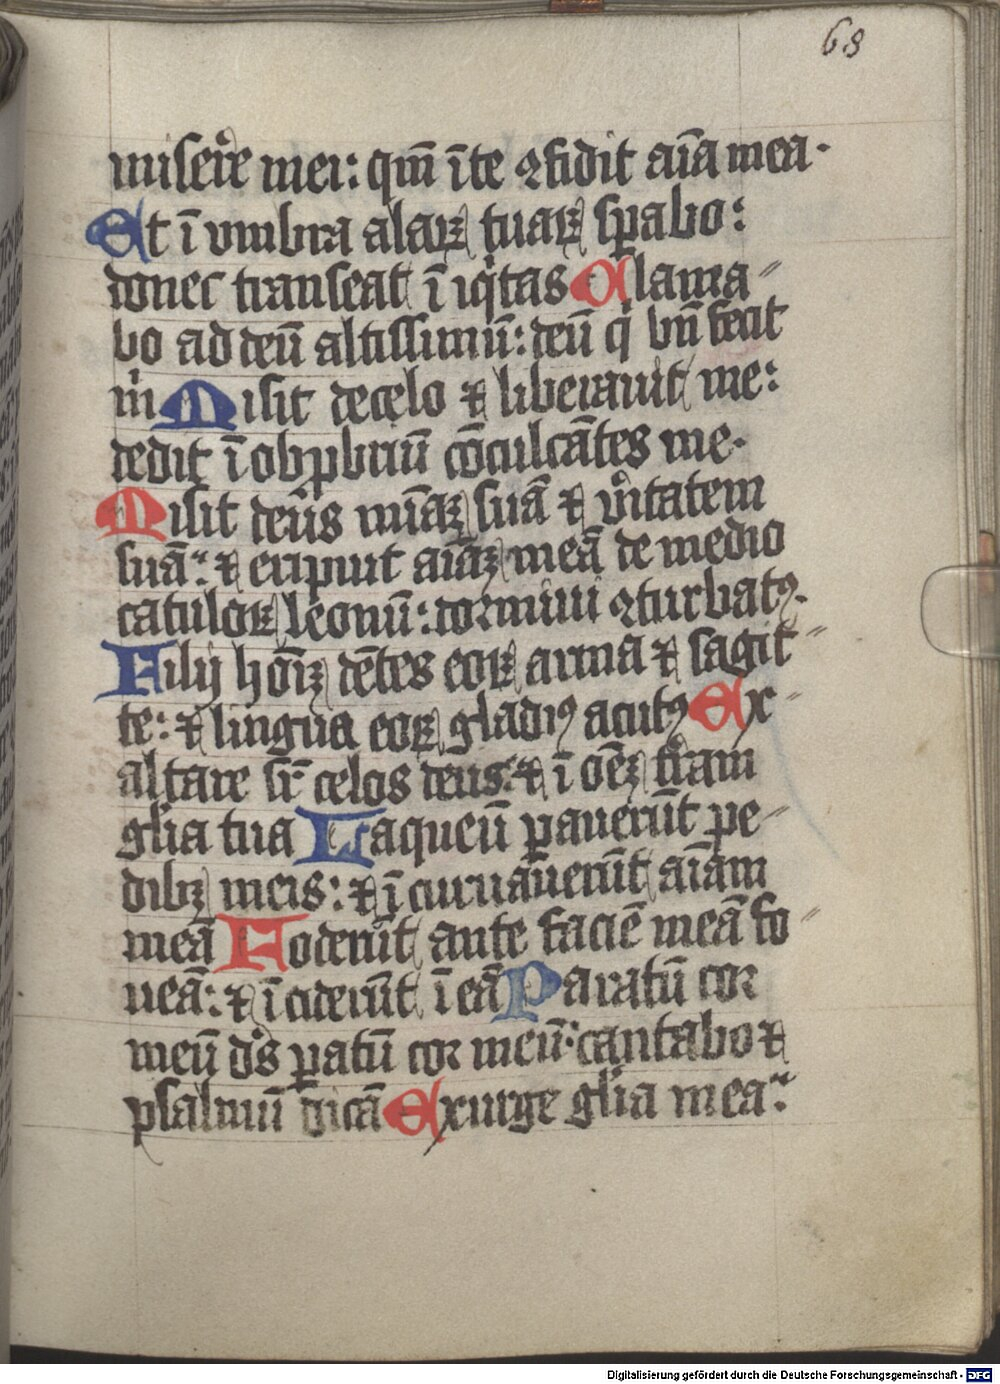 68
misere mei: qm̄ ī te ꝯfidit aīa mea·
Et ī vmbra alaꝝ tuaꝝ sꝑabo:
donec transeat ī iqͥtas Clama⸗
bo ad deū altissimū: deū qͥ bn̄ fecit
m̄ Misit de celo ⁊ liberauit me:
dedit ī obꝓbriū cōculcātes me·
Misit deus mīaꝫ suā ⁊ vͥitatem
suā: ⁊ eripuit aīaꝫ meā de medio
catuloꝝ leonū: dormiui ꝯturbatꝰ·
Filij hoīꝫ dētes eoꝝ arma ⁊ sagit⸗
te: ⁊ lingua eoꝝ gladiꝰ acutꝰ Ex⸗
altare sr̄ celos deus: ⁊ ī oēꝫ tr̄am
glīa tua Laqueū ꝑauerūt pe⸗
dibꝫ meis: ⁊ īcuruauerūt aīam
meā Foderūt ante faciē meā fo⸗
ueā: ⁊ īciderūt ī eā Paratū cor
meū ds̄ ꝑatū cor meū: cantabo ⁊
psalmū dicā Exurge glīa mea:
Digitalisierung gefördert durch die Deutsche Forschungsgemeinschaft - DFG